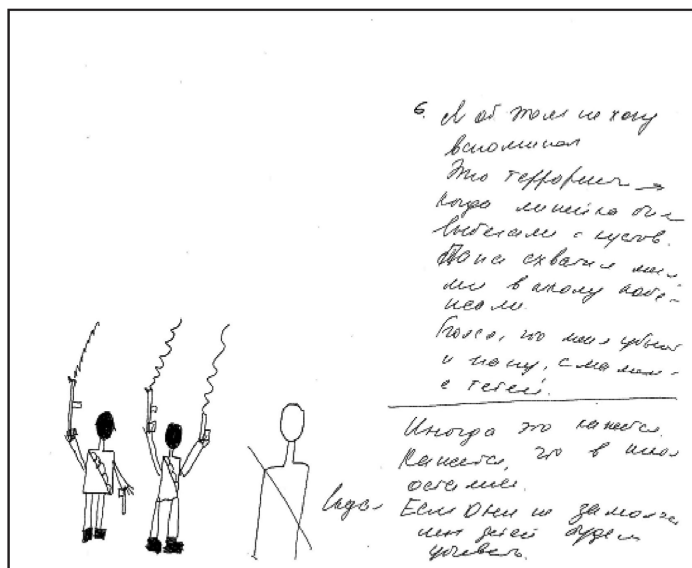 6. Я об этом не хочу
вспоминал
Это террорист →
Когда линейка был
выбегали с кустов.
Папа схватил мы
в школу побе-
жали.
Боял, что меня убьют
и папу, с мамой
с тетей.
Иногда это кажется.
Кажется, что в школ
остались.
Если Они не замолча
детей будем
убивать.